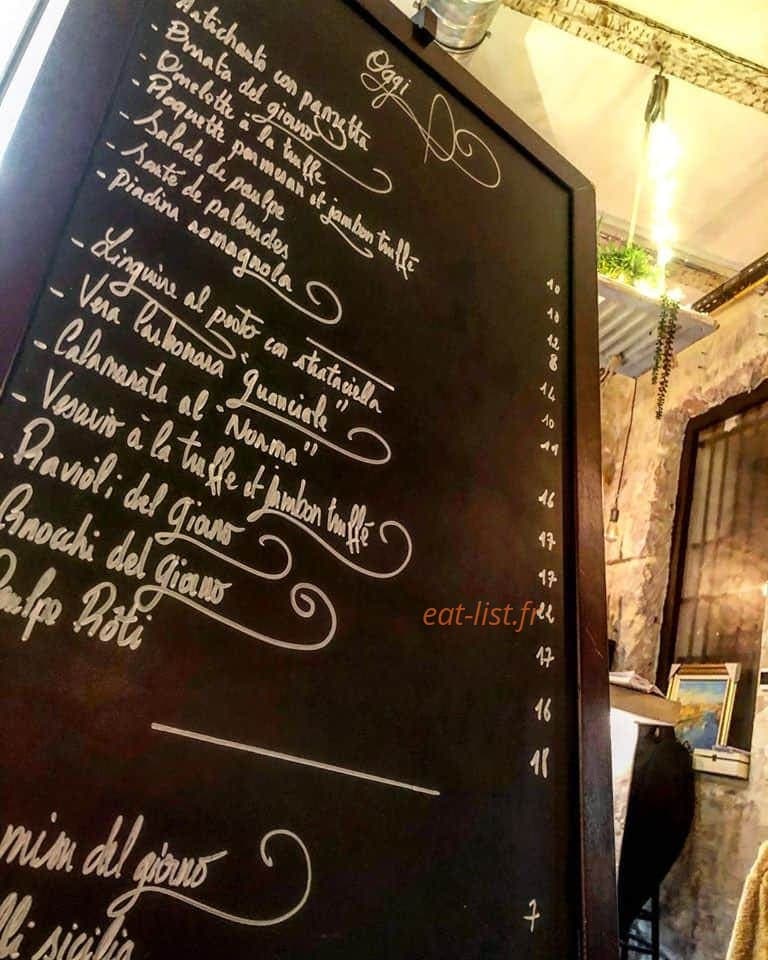 Oggi
- Artichauts con panzetta 10
- Burrata del giorno 10
- Omelette à la truffe 12
- Plaquette parmesan et jambon truffé 8
- Salade de poulpe 14
- Sauté de palourdes 10
- Piadina romagnola 11
- Linguine al pesto con stratciella 16
- Vera Carbonara "guanciale" 17
- Calamarata al "Norma" 17
- Vesuvio à la truffe et jambon truffé 22
- Ravioli del giorno 17
Gnocchi del giorno 16
Poulpe Rôti 18
del giorno 7
sicilia
eat-list.fr